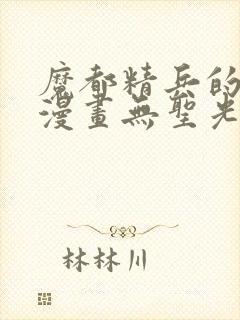 魔都精兵的
漫畫無聖光
林林川